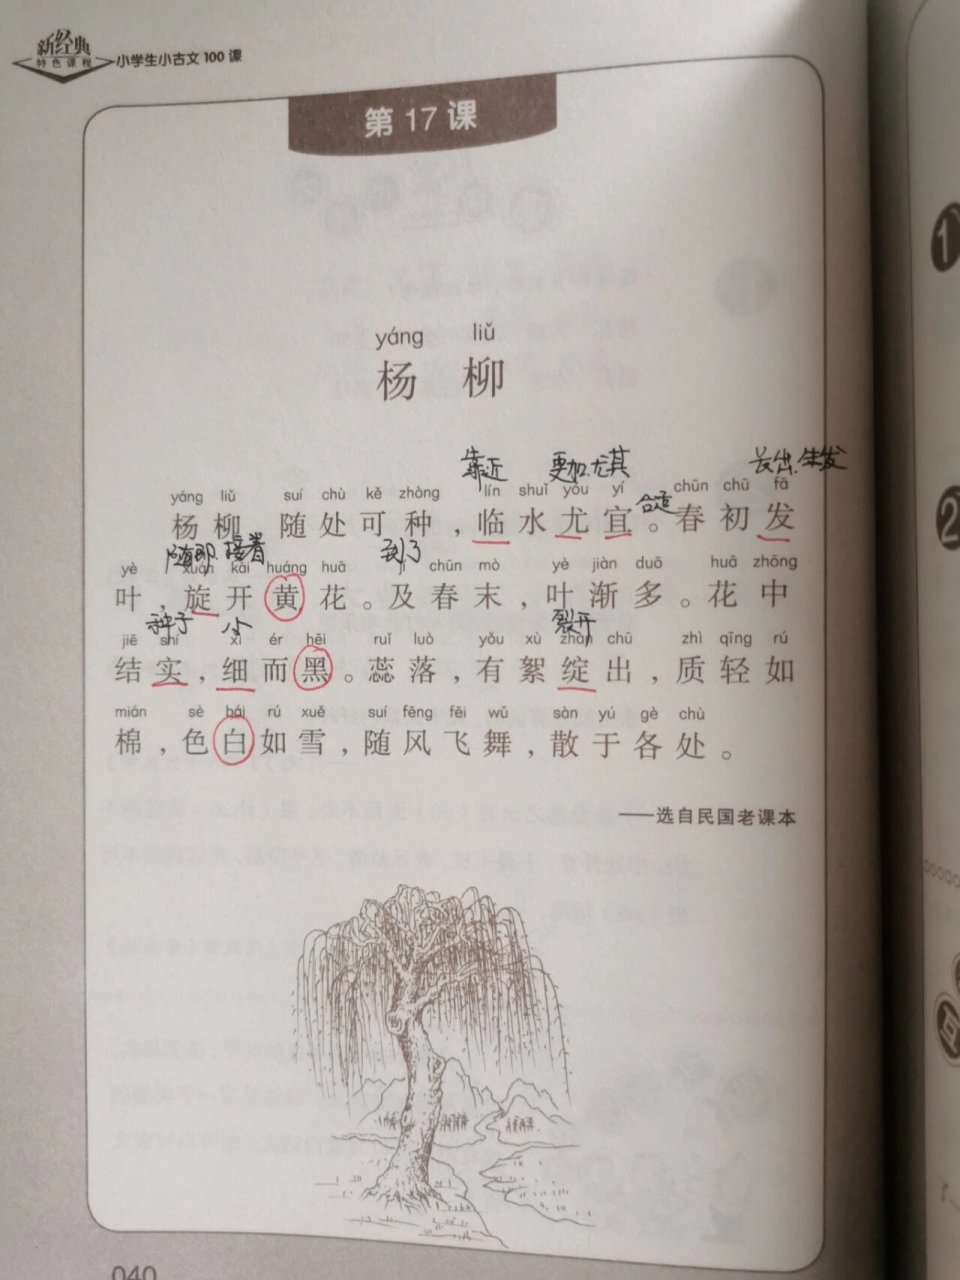 新经典
特色课程
小学生小古文100课
第17课
yáng liǔ
杨柳
靠近 更加.尤其 长出.生发
yáng liǔ suí chù kě zhòng lín shuǐ yóu yí chūn chū fā
合适
杨柳，随处可种，临水尤宜。春初发
随即.接着 到了
yè xuán kāi huáng huā jí chūn mò yè jiàn duō huā zhōng
叶，旋开黄花。及春末，叶渐多。花中
种子 小 裂开
jiē shí xì ér hēi ruǐ luò yǒu xù zhàn chū zhì qīng rú
结实，细而黑。蕊落，有絮绽出，质轻如
mián sè bái rú xuě suí fēng fēi wǔ sàn yú gè chù
棉，色白如雪，随风飞舞，散于各处。
——选自民国老课本
040
1
2
互